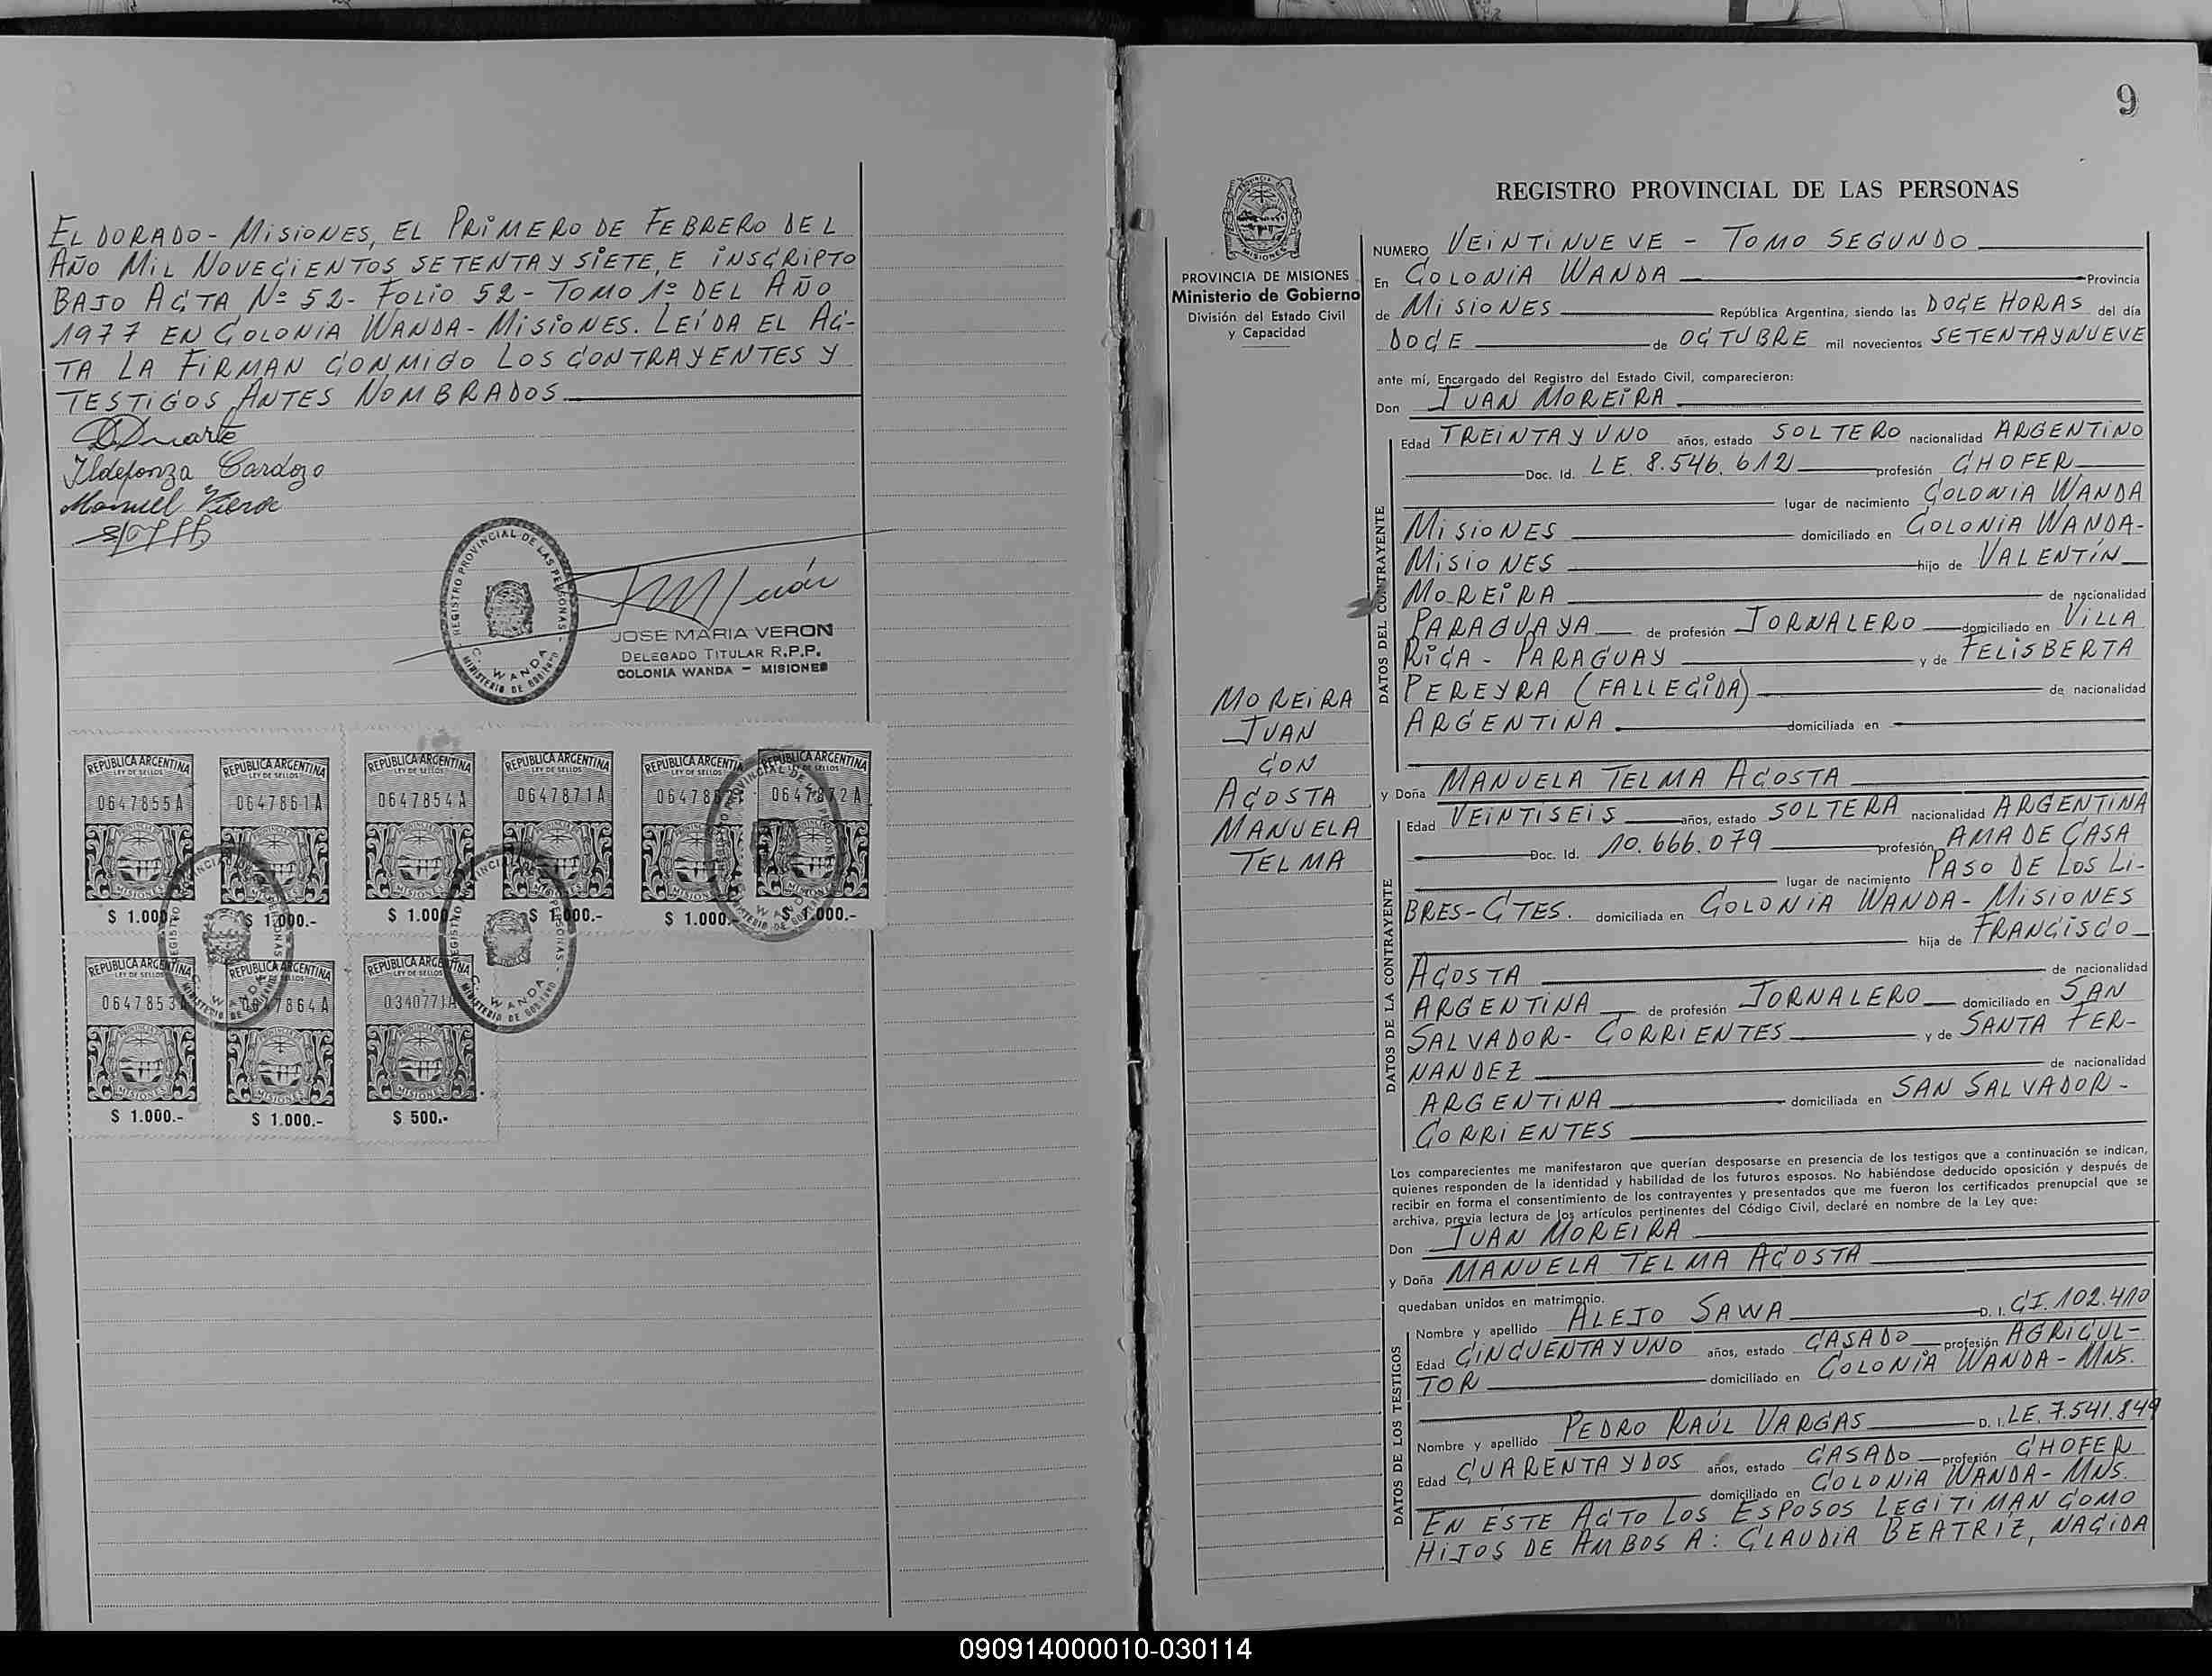 EL DORADO - MISIONES, EL PRIMERO DE FEBRERO DEL
AÑO MIL NOVECIENTOS SETENTA Y SIETE, E INSCRIPTO
BAJO ACTA Nº 52 - FOLIO 52 - TOMO 1º DEL AÑO
1977 EN COLONIA WANDA - MISIONES. LEÍDA EL AC-
TA LA FIRMAN CONMIGO LOS CONTRAYENTES Y
TESTIGOS ANTES NOMBRADOS
Duarte
Ildefonza Cardozo
Manuel
REGISTRO PROVINCIAL DE LAS PERSONAS -
C. WANDA
MINISTERIO DE GOBIERNO
JOSE MARIA VERON
DELEGADO TITULAR R.P.P.
COLONIA WANDA - MISIONES
REPUBLICA ARGENTINA REPUBLICA ARGENTINA REPUBLICA ARGENTINA REPUBLICA ARGENTINA REPUBLICA ARGENTINA REPUBLICA ARGENTINA
LEY DE SELLOS LEY DE SELLOS LEY DE SELLOS LEY DE SELLOS LEY DE SELLOS LEY DE SELLOS
0647855A 0647861A 0647854A 0647871A 0647872A
MISIONES MISIONES MISIONES MISIONES MISIONES MISIONES
$ 1.000.- $ 1.000.- $ 1.000.- $ 1.000.- $ 1.000.- $ 1.000.-
REPUBLICA ARGENTINA REPUBLICA ARGENTINA REPUBLICA ARGENTINA
LEY DE SELLOS LEY DE SELLOS LEY DE SELLOS
0647853A 0647864A 0340771A
MISIONES MISIONES MISIONES
$ 1.000.- $ 1.000.- $ 500.-
9
PROVINCIA DE MISIONES
Ministerio de Gobierno
División del Estado Civil
y Capacidad
MOREIRA
JUAN
CON
ACOSTA
MANUELA
TELMA
REGISTRO PROVINCIAL DE LAS PERSONAS
NUMERO VEINTINUEVE - TOMO SEGUNDO
En COLONIA WANDA Provincia
de MISIONES República Argentina, siendo las DOCE HORAS del día
DOCE de OCTUBRE mil novecientos SETENTAYNUEVE
ante mí, Encargado del Registro del Estado Civil, comparecieron:
Don JUAN MOREIRA
DATOS DEL CONTRAYENTE
Edad TREINTA Y UNO años, estado SOLTERO nacionalidad ARGENTINO
Doc. Id. LE. 8.546.612 profesión CHOFER
lugar de nacimiento COLONIA WANDA
MISIONES domiciliado en COLONIA WANDA-
MISIONES hijo de VALENTÍN
MOREIRA de nacionalidad
PARAGUAYA de profesión JORNALERO domiciliado en VILLA
RICA - PARAGUAY y de FELISBERTA
PEREYRA (FALLECIDA) de nacionalidad
ARGENTINA domiciliada en
y Doña MANUELA TELMA ACOSTA
DATOS DE LA CONTRAYENTE
Edad VEINTISEIS años, estado SOLTERA nacionalidad ARGENTINA
Doc. Id. 10.666.079 profesión AMA DE CASA
lugar de nacimiento PASO DE LOS LI-
BRES-CTES. domiciliada en COLONIA WANDA - MISIONES
hija de FRANCISCO
ACOSTA de nacionalidad
ARGENTINA de profesión JORNALERO domiciliado en SAN
SALVADOR - CORRIENTES y de SANTA FER-
NANDEZ de nacionalidad
ARGENTINA domiciliada en SAN SALVADOR -
CORRIENTES
Los comparecientes me manifestaron que querían desposarse en presencia de los testigos que a continuación se indican,
quienes responden de la identidad y habilidad de los futuros esposos. No habiéndose deducido oposición y después de
recibir en forma el consentimiento de los contrayentes y presentados que me fueron los certificados prenupcial que se
archiva, previa lectura de los artículos pertinentes del Código Civil, declaré en nombre de la Ley que:
Don JUAN MOREIRA
y Doña MANUELA TELMA ACOSTA
quedaban unidos en matrimonio.
DATOS DE LOS TESTIGOS
Nombre y apellido ALEJO SAWA D. I. CI. 102.410
Edad CINCUENTA Y UNO años, estado CASADO profesión AGRICUL-
TOR domiciliado en COLONIA WANDA - MNS.
Nombre y apellido PEDRO RAÚL VARGAS D. I. LE. 7.541.849
Edad CUARENTA Y DOS años, estado CASADO profesión CHOFER
domiciliado en COLONIA WANDA - MNS.
EN ESTE ACTO LOS ESPOSOS LEGITIMAN COMO
HIJOS DE AMBOS A: CLAUDIA BEATRIZ, NACIDA
090914000010-030114